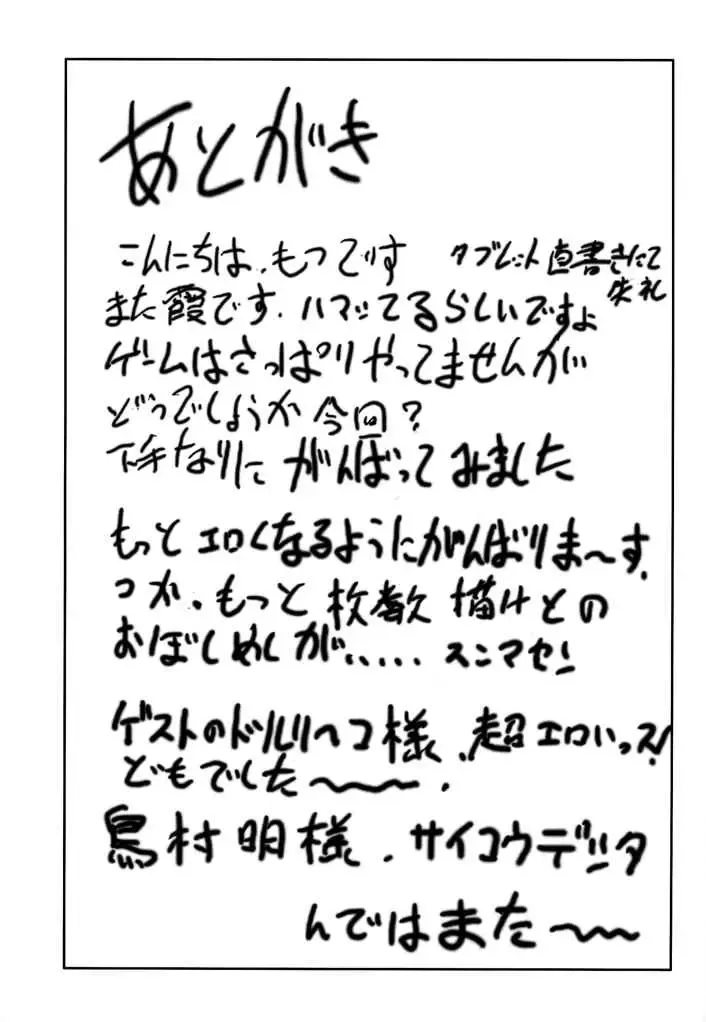 あとがき
こんにちは、もつです
タブレット直書きにて
失礼
また霞です、ハマッてるらしいですよ
ゲームはさっぱりやってませんが
どうでしょうか今回?
下手なりに がんばってみました
もっとエロくなるようにがんばりま〜す.
つか、もっと枚数描けとの
おぼしめしが..... スンマセン
ゲストのドリルリヘコ様、超エロいっス!
どもでした〜〜.
鳥村明様、サイコウデシタ
んではまた〜〜